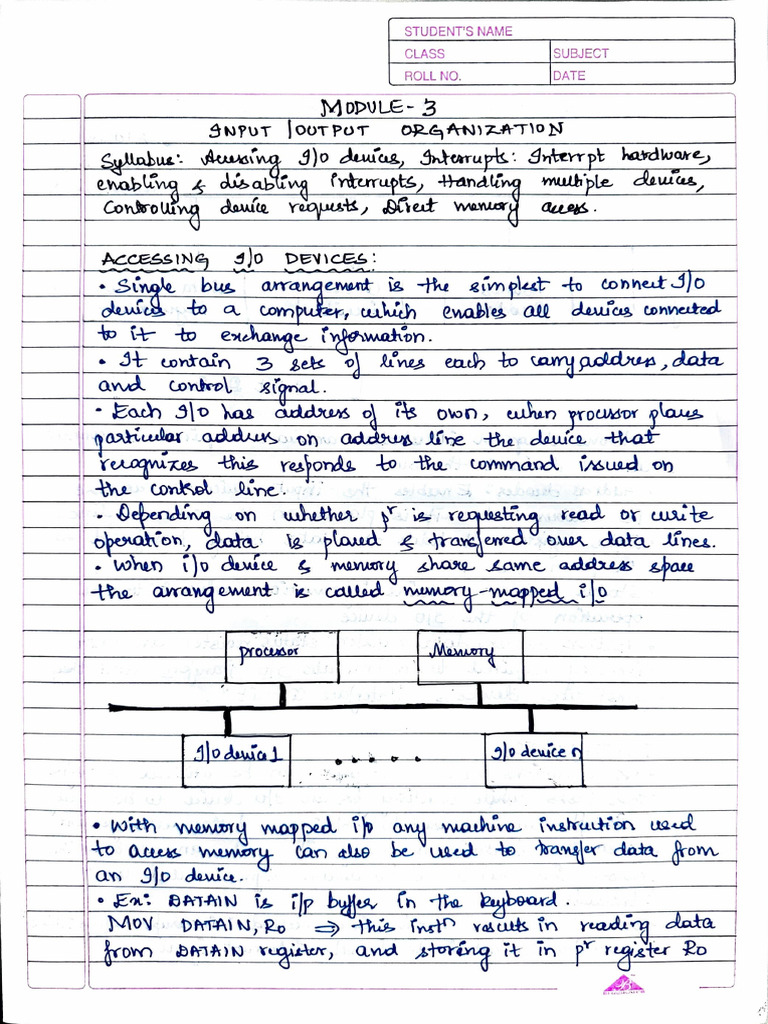 STUDENT'S NAME
CLASS SUBJECT
ROLL NO. DATE
MODULE-3
INPUT/OUTPUT ORGANIZATION
Syllabus: Acessing I/O devices, Interrupts: Interrpt hardware,
enabling & disabling interrupts, Handling multiple devices,
Controlling device requests, Direct memory access.
ACCESSING I/O DEVICES:
• Single bus arrangement is the simplest to connect I/O
devices to a computer, which enables all devices connected
to it to exchange information.
• It contain 3 sets of lines each to carry address, data
and control signal.
• Each I/O has address of its own, when processor places
particular address on address line the device that
recognizes this responds to the command issued on
the control line.
• Depending on whether pr is requesting read or write
operation, data is placed & transferred over data lines.
• When i/o device & memory share same address space
the arrangement is called memory-mapped i/o
processor Memory
I/O device 1 ..... I/O device n
• With memory mapped i/o any machine instruction used
to access memory can also be used to transfer data from
an I/O device.
• Ex: DATAIN is i/p buffer in the keyboard.
MOV DATAIN, R0 ⇒ this instn results in reading data
from DATAIN register, and storing it in pr register R0